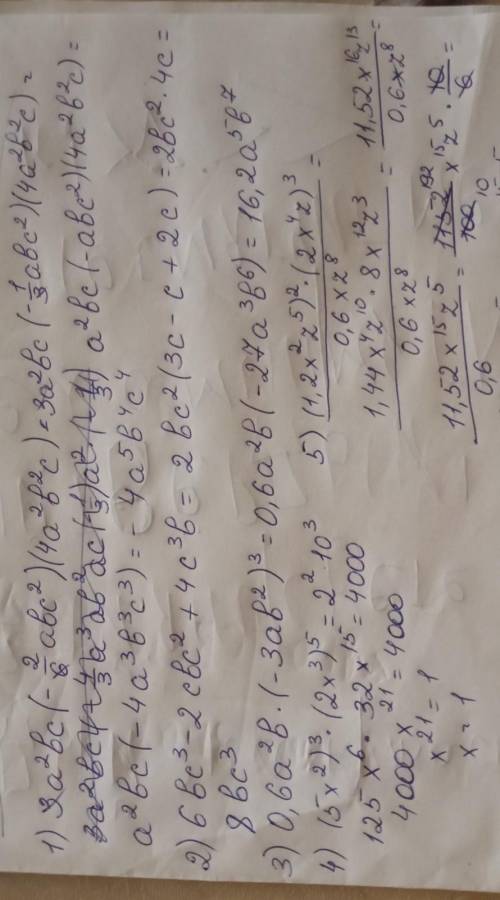 1) 3a²bc(-2/6 abc²)(4a²b²c)=3a²bc(-1/3 abc²)(4a²b²c)=
a²bc(-abc²)(4a²b²c)=
a²bc(-4a³b³c³)=-4a⁵b⁴c⁴
2) 6bc³-2cbc²+4c³b=2bc²(3c-c+2c)=2bc²·4c=
8bc³
3) 0,6a²b·(-3ab²)³=0,6a²b(-27a³b⁶)=16,2a⁵b⁷
4) (5x²)³·(2x³)⁵=2²10³
125x⁶·32x¹⁵=4000
4000x²¹=4000
x²¹=1
x=1
5) (1,2x²z⁵)²·(2x⁴z)³/0,6xz⁸=
1,44x⁴z¹⁰·8x¹²z³/0,6xz⁸=11,52x¹⁶z¹³/0,6xz⁸=
11,52x¹⁵z⁵/0,6=1152/100 x¹⁵z⁵·10/6=